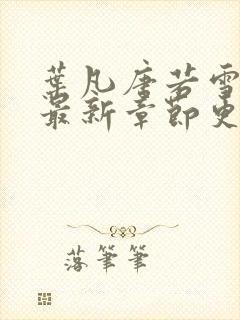 葉凡唐若雪
最新章節史
落筆筆